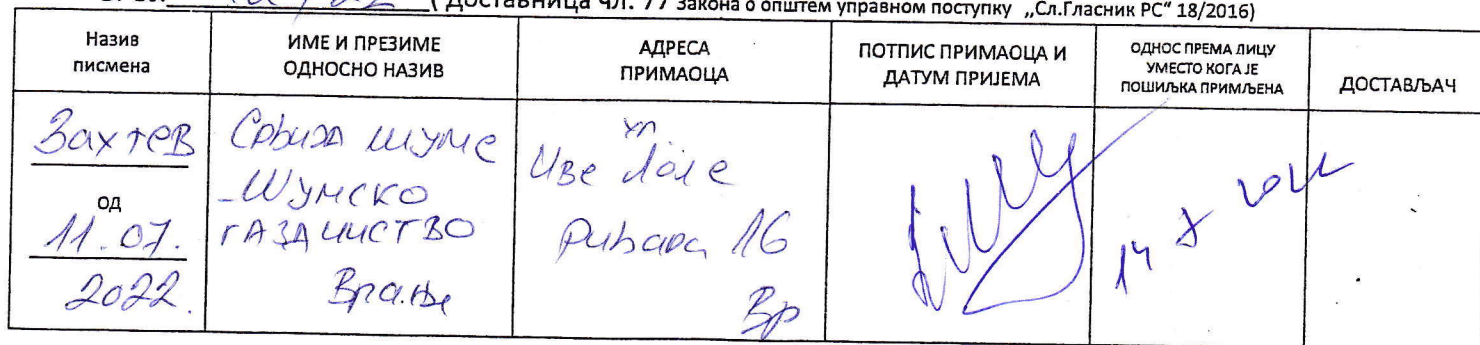 ( доставница чл. 77 Закона о општем управном поступку „Сл.Гласник РС“ 18/2016)
Назив писмена
ИМЕ И ПРЕЗИМЕ ОДНОСНО НАЗИВ
АДРЕСА ПРИМАОЦА
ПОТПИС ПРИМАОЦА И ДАТУМ ПРИЈЕМА
ОДНОС ПРЕМА ЛИЦУ УМЕСТО КОГА ЈЕ ПОШИЉКА ПРИМЉЕНА
ДОСТАВЉАЧ
Захтев
од
11.07.
2022.
Србија шуме
-Шумско
газдинство
Врање
ул.
Иве Лоле
Рибара 16
Вр
14 7 2022